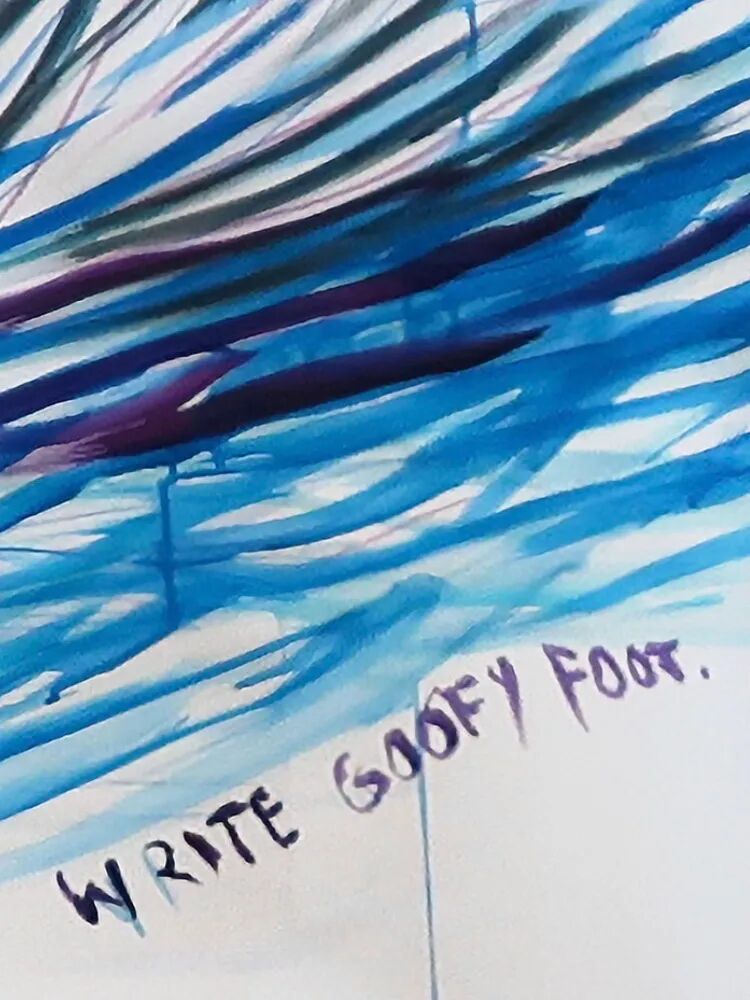 WROTE GOOFY FOOT.